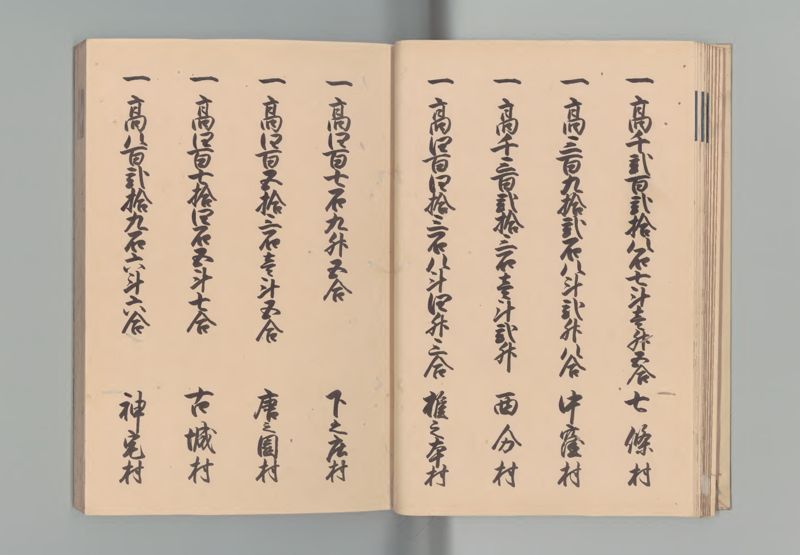 一 高千弐百弐拾八石七斗壱升五合 七條村
一 高三百九拾弐石八斗弐升八合 中窪村
一 高千三百弐拾三石壱斗弐升 西分村
一 高四百四拾三石八斗四升三合 椎之本村
一 高四百七石九升五合 下之庄村
一 高四百五拾三石壱斗五合 唐之園村
一 高四百七拾四石五斗七合 古城村
一 高八百弐拾九石六斗六合 神宅村